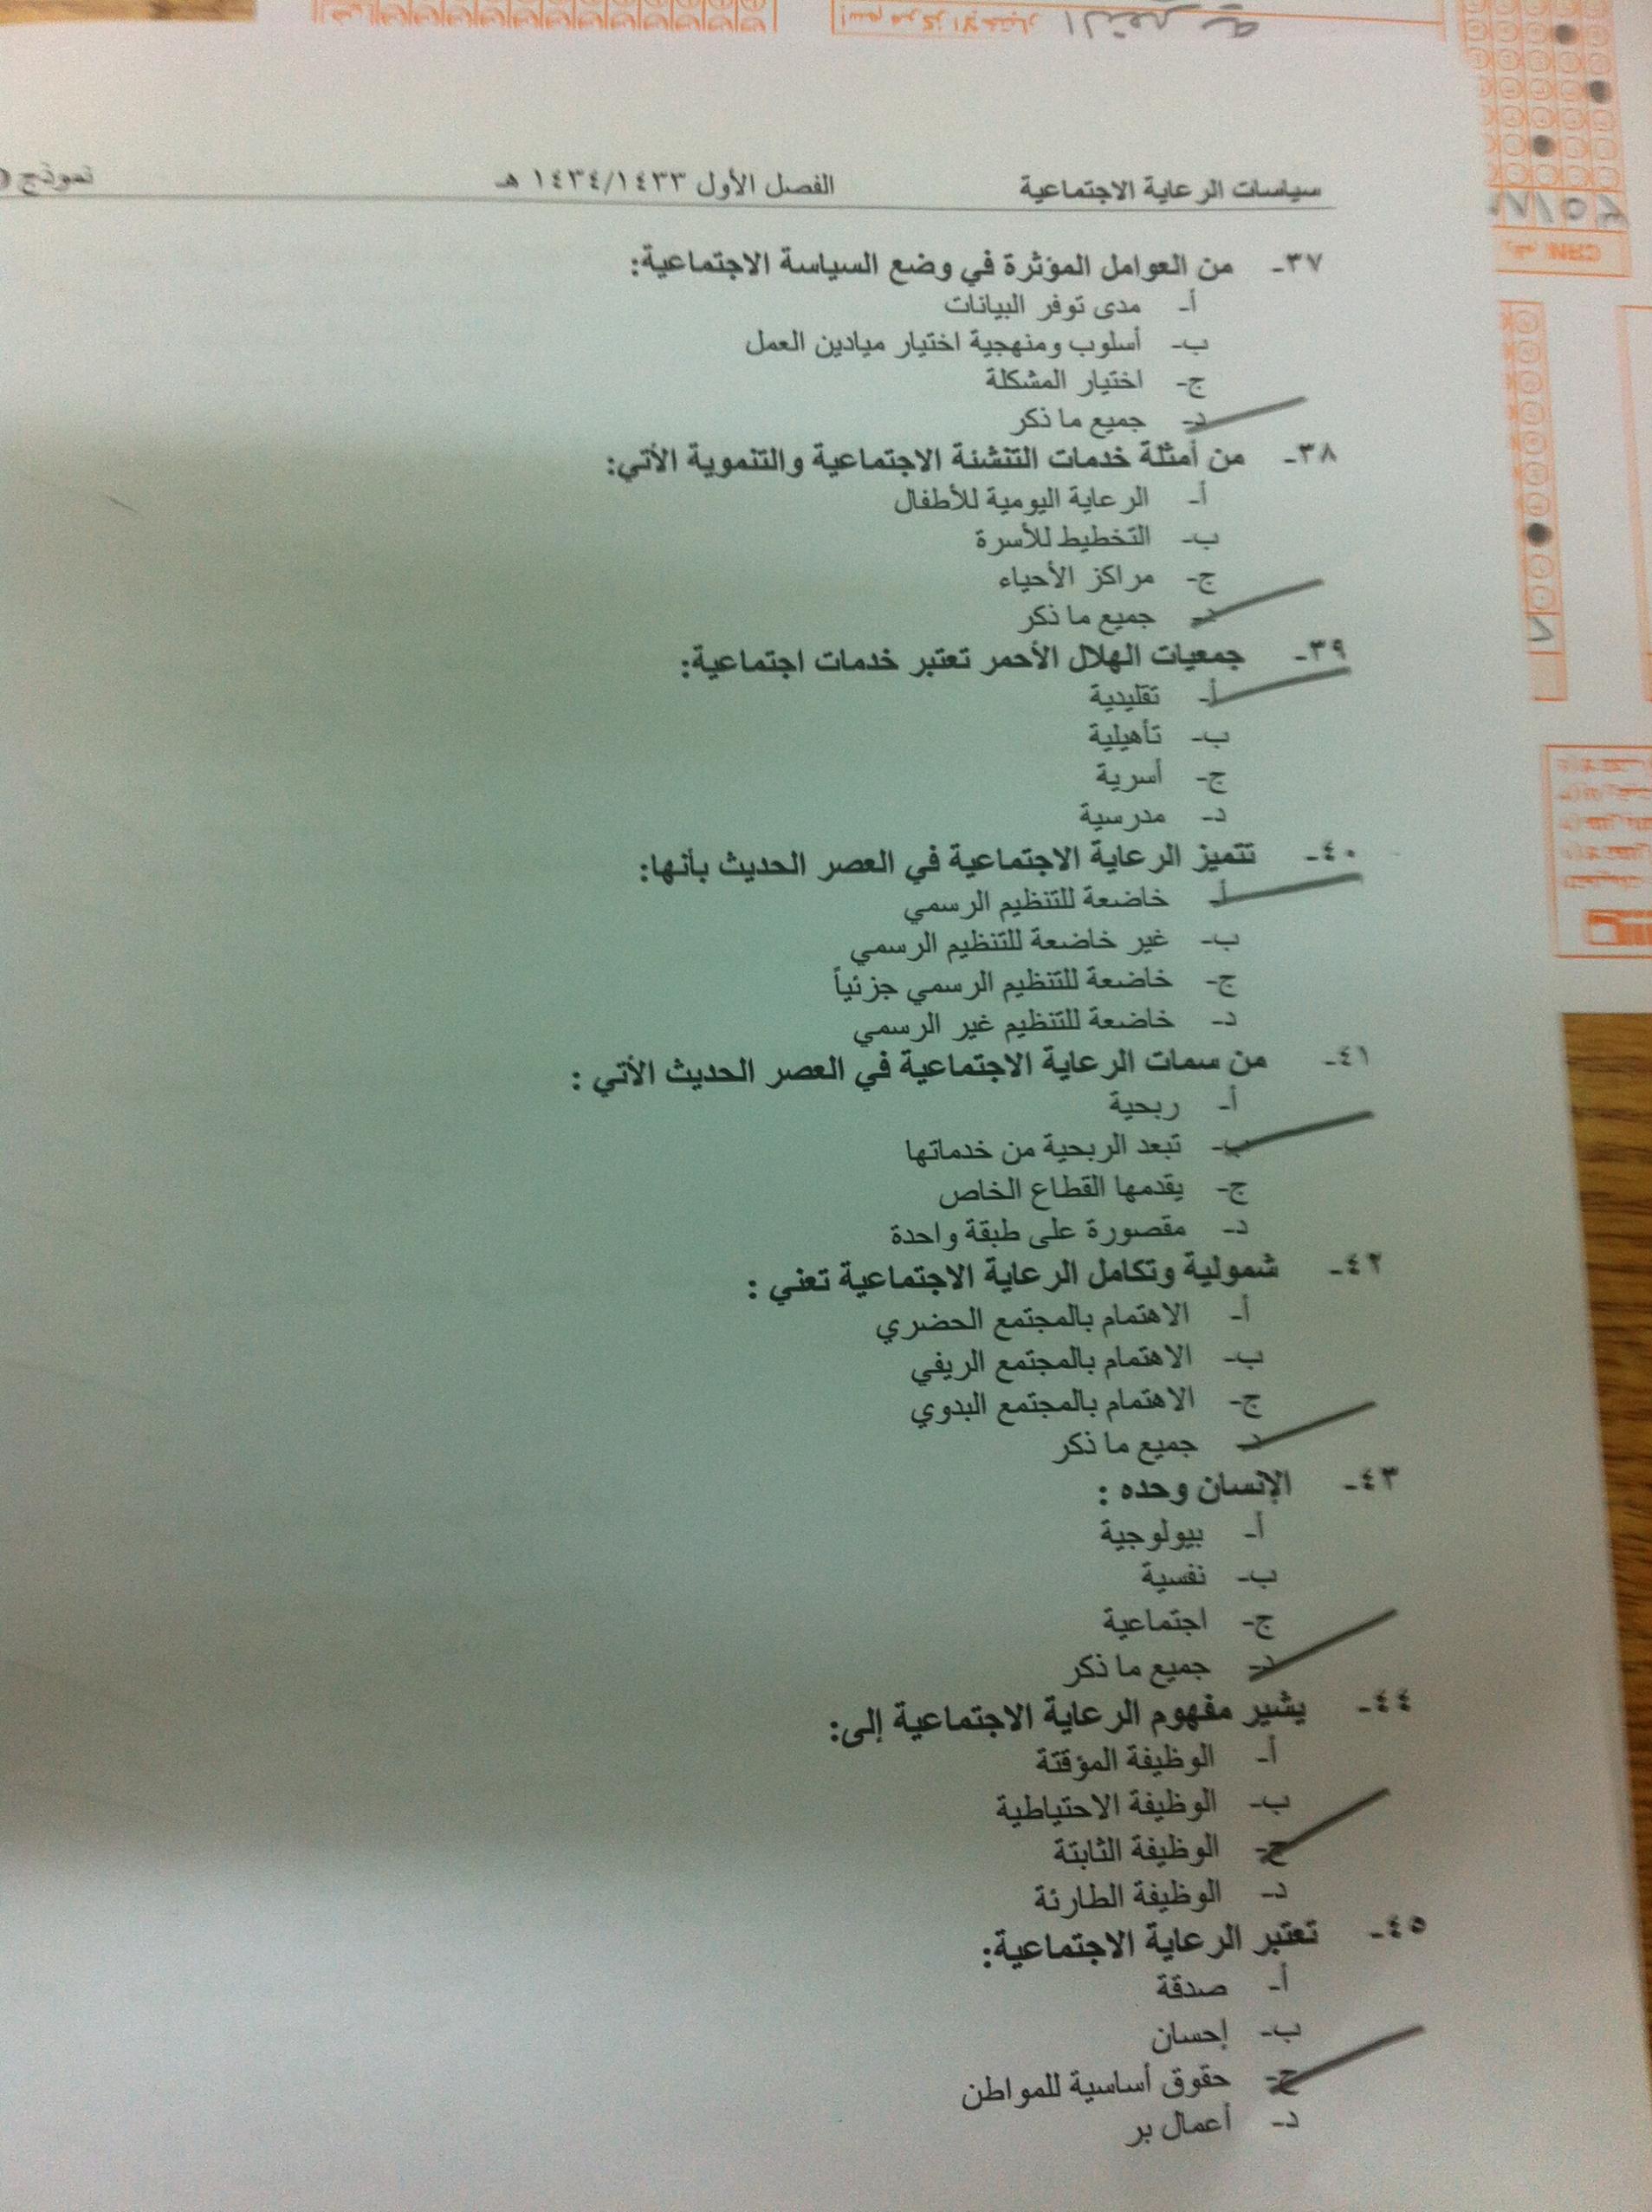 سياسات الرعاية الاجتماعية الفصل الأول ١٤٣٤/١٤٣٣ هـ نموذج
٣٧- من العوامل المؤثرة في وضع السياسة الاجتماعية:
أ- مدى توفر البيانات
ب- أسلوب ومنهجية اختيار ميادين العمل
ج- اختيار المشكلة
د- جميع ما ذكر
٣٨- من أمثلة خدمات التنشئة الاجتماعية والتنموية الأتي:
أ- الرعاية اليومية للأطفال
ب- التخطيط للأسرة
ج- مراكز الأحياء
د- جميع ما ذكر
٣٩- جمعيات الهلال الأحمر تعتبر خدمات اجتماعية:
أ- تقليدية
ب- تأهيلية
ج- أسرية
د- مدرسية
٤٠- تتميز الرعاية الاجتماعية في العصر الحديث بأنها:
أ- خاضعة للتنظيم الرسمي
ب- غير خاضعة للتنظيم الرسمي
ج- خاضعة للتنظيم الرسمي جزئياً
د- خاضعة للتنظيم غير الرسمي
٤١- من سمات الرعاية الاجتماعية في العصر الحديث الأتي :
أ- ربحية
ب- تبعد الربحية من خدماتها
ج- يقدمها القطاع الخاص
د- مقصورة على طبقة واحدة
٤٢- شمولية وتكامل الرعاية الاجتماعية تعني :
أ- الاهتمام بالمجتمع الحضري
ب- الاهتمام بالمجتمع الريفي
ج- الاهتمام بالمجتمع البدوي
د- جميع ما ذكر
٤٣- الإنسان وحده :
أ- بيولوجية
ب- نفسية
ج- اجتماعية
د- جميع ما ذكر
٤٤- يشير مفهوم الرعاية الاجتماعية إلى:
أ- الوظيفة المؤقتة
ب- الوظيفة الاحتياطية
ج- الوظيفة الثابتة
د- الوظيفة الطارئة
٤٥- تعتبر الرعاية الاجتماعية:
أ- صدقة
ب- إحسان
ج- حقوق أساسية للمواطن
د- أعمال بر